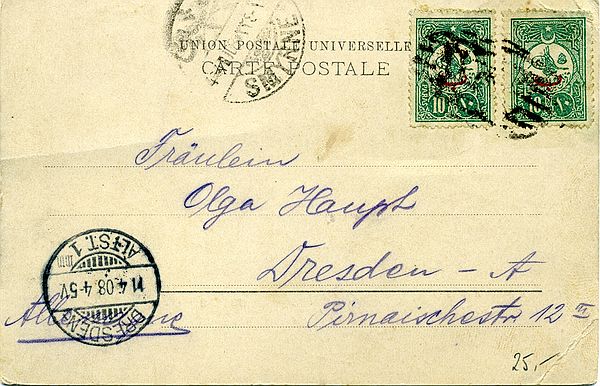 UNION POSTALE UNIVERSELLE
CARTE POSTALE
10 10
Fräulein
Olga Haupt
Dresden - A
Pirnaischestr. 12 III
Allemagne
DRESDEN
ALTST. 1
11.4.08.4-5V
SMYRNE
25,-